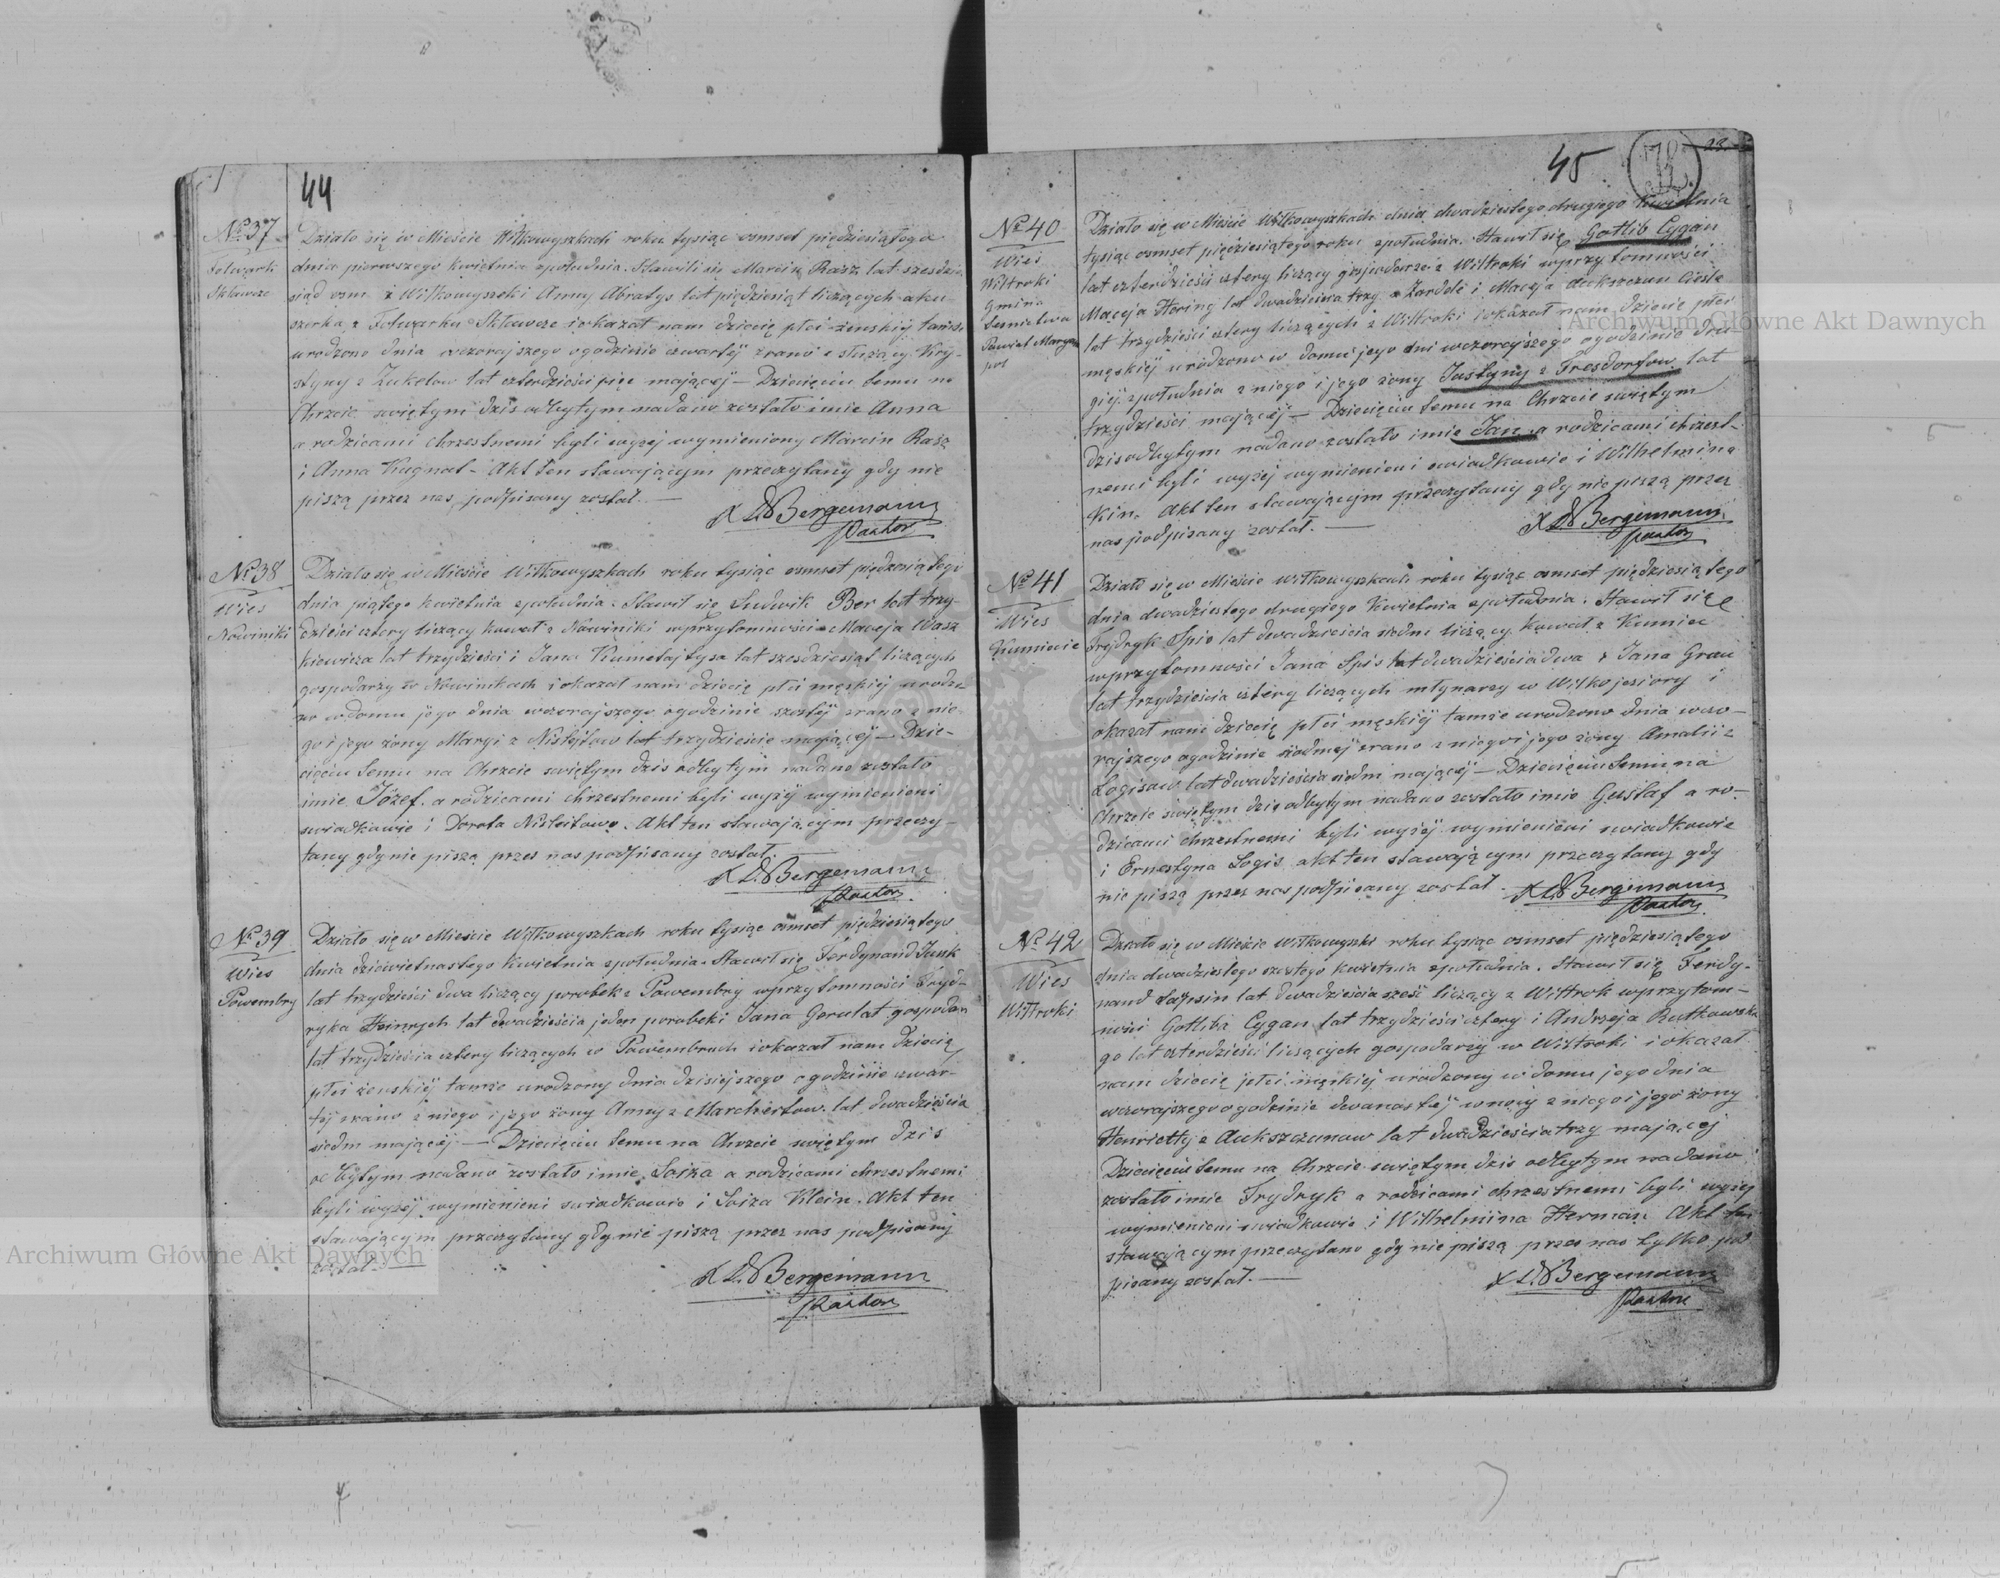 44
No 37
Folwark
Sktawcze
Działo się w Mieście Wiłkowyszkach roku tysiąc osmset pięćdziesiątego
dnia pierwszego kwietnia zpołudnia. Stawili się Marcin Rasz lat szesdzie-
siąd osm z Wiłkowyszek i Anny Abratys lat pięćdziesiąt liczących aku-
szerka z Folwarku Sktawcze i okazał nam dziecię płci żenskiéj tamże
urodzone dnia wczorajszego ogodzinie czwartéj zrana z służącey Kry-
styny z Zukelow lat czterdzieści pięc mającéj — Dziecięciu temu na
Chrzcie swiętym dzis odbytym nadano zostało imie Anna
a rodzicami chrzestnemi byli wyzej wymieniony Marcin Rasz
i Anna Kugnat - Akt ten stawającym przeczytany gdy nie
piszą przez nas podpisany został. —
X L.D Bergemann
Pastor
No 38
Wies
Nowiniki
Działo się w Mieście Wiłkowyszkach roku tysiąc osmset pięćdziesiątego
dnia piątego kwietnia zpołudnia. Stawił się Ludwik Ber lat trzy-
dzieści cztery liczący kowal z Nowiniki wprzytomności Macieja Wasz
kiewicza lat trzydzieści i Jana Kumetajtysa lat szesdziesiąt liczących
gospodarzy w Nowinikach i okazał nam dziecię płci męskiéj urodzo-
no w domu jego dnia wczorajszego ogodzinie szostéj zrana z nie-
go i jego żony Maryi z Nisleitow lat trzydzieście mającéj — Dzie-
cięciu temu na Chrzcie swiętym dzis odbytym nadano zostało
imie Józef. a rodzicami chrzestnemi byli wyzéj wymienieni
swiadkowie i Dorota Nisleitowa. Akt ten stawającym przeczy-
tany gdy nie piszą przez nas podpisany został.
X L.D Bergemann
Pastor
No 39
Wies
Pawembry
Działo się w Mieście Wiłkowyszkach roku tysiąc osmset pięćdziesiątego
dnia dziewietnastego kwietnia zpołudnia. Stawił się Ferdynand Junk
lat trzydzieści dwa liczący porobek z Pawembry wprzytomności Fryd-
ryka Heinrych lat dwadzieścia jeden porobeki Jana Gerulat gospodarz
lat trzydzieścia cztery liczących w Pawembrach i okazał nam dziecię
płci żenskiéj tamże urodzony dnia dzisiejszego ogodzinie czwar-
téj zrana z niego i jego żony Anny z Marchertow lat dwadzieścia
siedm mającéj — Dziecięciu temu na Chrzcie swiętym dzis
odbytym nadano zostało imie Lojza a rodzicami chrzestnemi
byli wyżéj wymienieni swiadkowie i Lojza Klein. Akt ten
stawającym przeczytany gdy nie piszą przez nas podpisany
został. —
X L.D Bergemann
Pastor
45
23.
No 40
Wies
Wiltroki
Gmina
Powiat Maryam
pol
Działo się w Mieście Wiłkowyszkach dnia dwudziestego drugiego Kwietnia
tysiąc osmset pięćdziesiątego roku zpołudnia. Stawił się Gotlib Cygan
lat czterdzieści cztery liczący gospodarz z Wiltroki wprzytomności
Macieja Hering lat dwadzieścia trzy z Zardele i Macieja Aukszczun Cieśle
lat trzydzieści cztery liczących z Wiltroki i okazał nam dziecię płci
męskiéj urodzono w domu jego dni wczorajszego ogodzinie dru-
giéj zpołudnia z niego i jego żony Justyny z Tresdorfow lat
trzydzieści mającéj — Dziecięciu temu na Chrzcie swiętym
dzis odbytym nadano zostało imie Jan a rodzicami chrzest-
nemi byli wyzéj wymienieni swiadkowie i Wilhelmina
Kin. Akt ten stawającym przeczytany gdy nie piszą przez
nas podpisany został. —
X L.D Bergemann
Pastor
No 41
Wies
Kumiecie
Działo się w Mieście Wiłkowyszkach roku tysiąc osmset pięćdziesiątego
dnia dwudziestego drugiego Kwietnia zpołudnia. Stawił się
Frydryk Spis lat dwadzieścia siedm liczący kowal z Kumiec
wprzytomności Jana Spis lat dwadzieścia dwa i Jana Grau
lat trzydzieścia cztéry liczących młynarzy w Wiłkojeziory i
okazał nam dziecię płci męskiéj tamże urodzono dnia wczo-
rajszego ogodzinie siódmej zrana z niego i jego żony Amalii z
Logisow lat dwadzieścia siedm mającéj — Dziecięciu temu na
Chrzcie swiętym dzis odbytym nadano zostało imie Gustaf a ro-
dzicami chrzestnemi byli wyżéj wymienieni swiadkowie
i Ernestyna Logis akt ten stawającym przeczytany gdy
nie piszą przez nas podpisany został.
X L.D Bergemann
Pastor
No 42
Wies
Wiltroki
Działo się w Mieście Wiłkowyszki roku tysiąc osmset pięćdziesiątego
dnia dwudziestego szostego kwietnia zpołudnia. Stawił się Ferdy-
nand Łapsin lat dwadzieścia sześć liczący z Wiltrok wprzytom-
ności Gotliba Cygan lat trzydzieści cztery i Andrzeja Rutkowskie
go lat czterdzieści liczących gospodarzy w Wiltroki i okazał
nam dziecię płci męskiej urodzony w domu jego dnia
wczorajszego ogodzinie dwanastéj wnocy z niego i jego żony
Henriétty z Aukszczunow lat dwadzieścia trzy mającej
Dziecięciu temu na Chrzcie swiętym dzis odbytym nadano
zostało imie Frydryk a rodzicami chrzestnemi byli wyżej
wymienieni swiadkowie i Wilhelmina Herman. Akt ten
stawającym przeczytano gdy nie piszą przez nas tylko pod
pisany został. —
X L.D Bergemann
Pastor
Archiwum Główne Akt Dawnych
Archiwum Główne Akt Dawnych